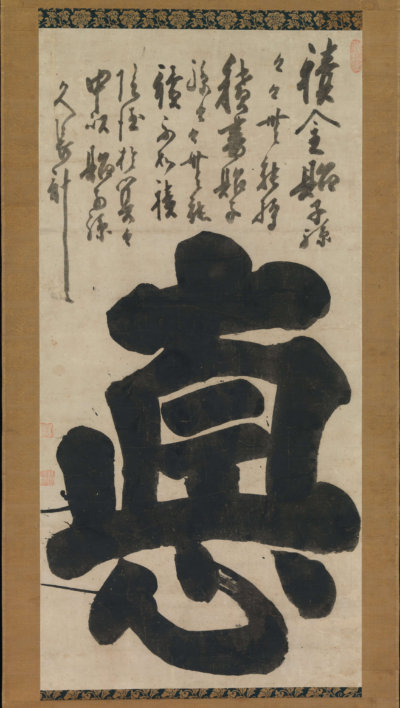 積金貽子孫
々々無能持
積書貽子
孫々々無能
讀不如積
陰徳於冥々
中以貽子孫
久長計
悳